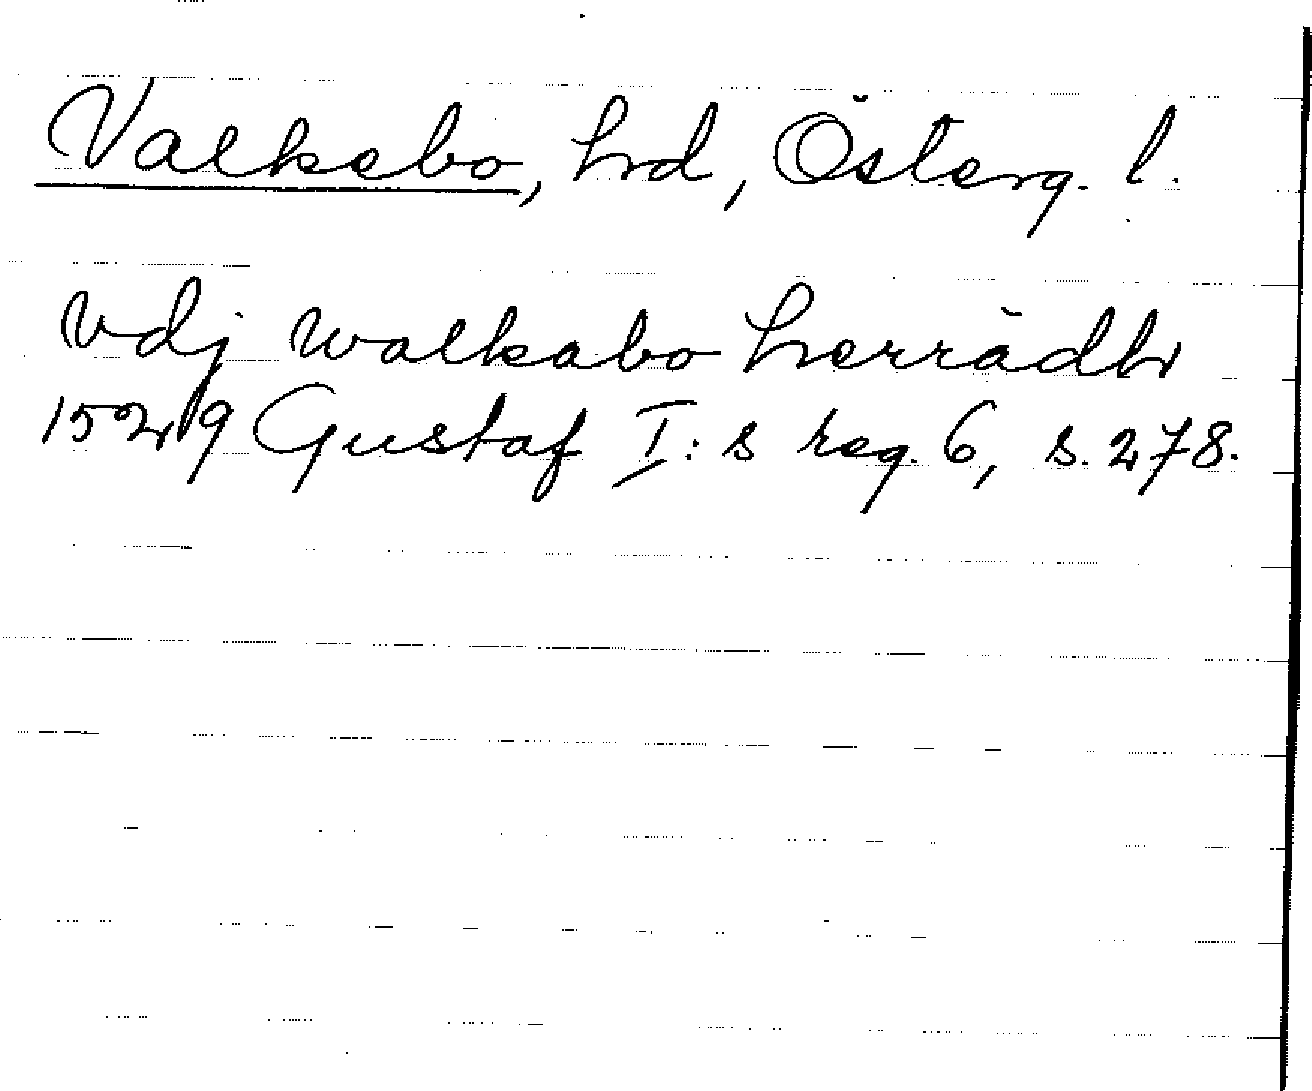 Valkebo, hrd, Österg. l.
vdj walkabo herrädh
1529 Gustaf I:s reg. 6, s. 278.